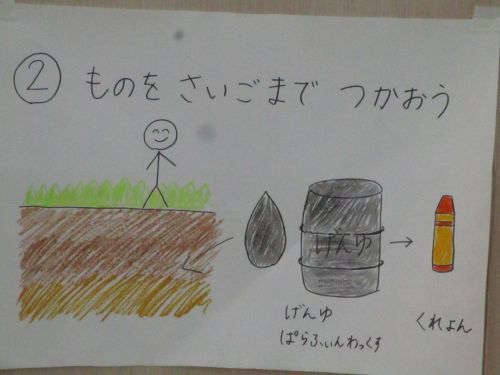 ② ものを さいごまで つかおう
げんゆ
げんゆ
ぱらふぃんわっくす
くれよん